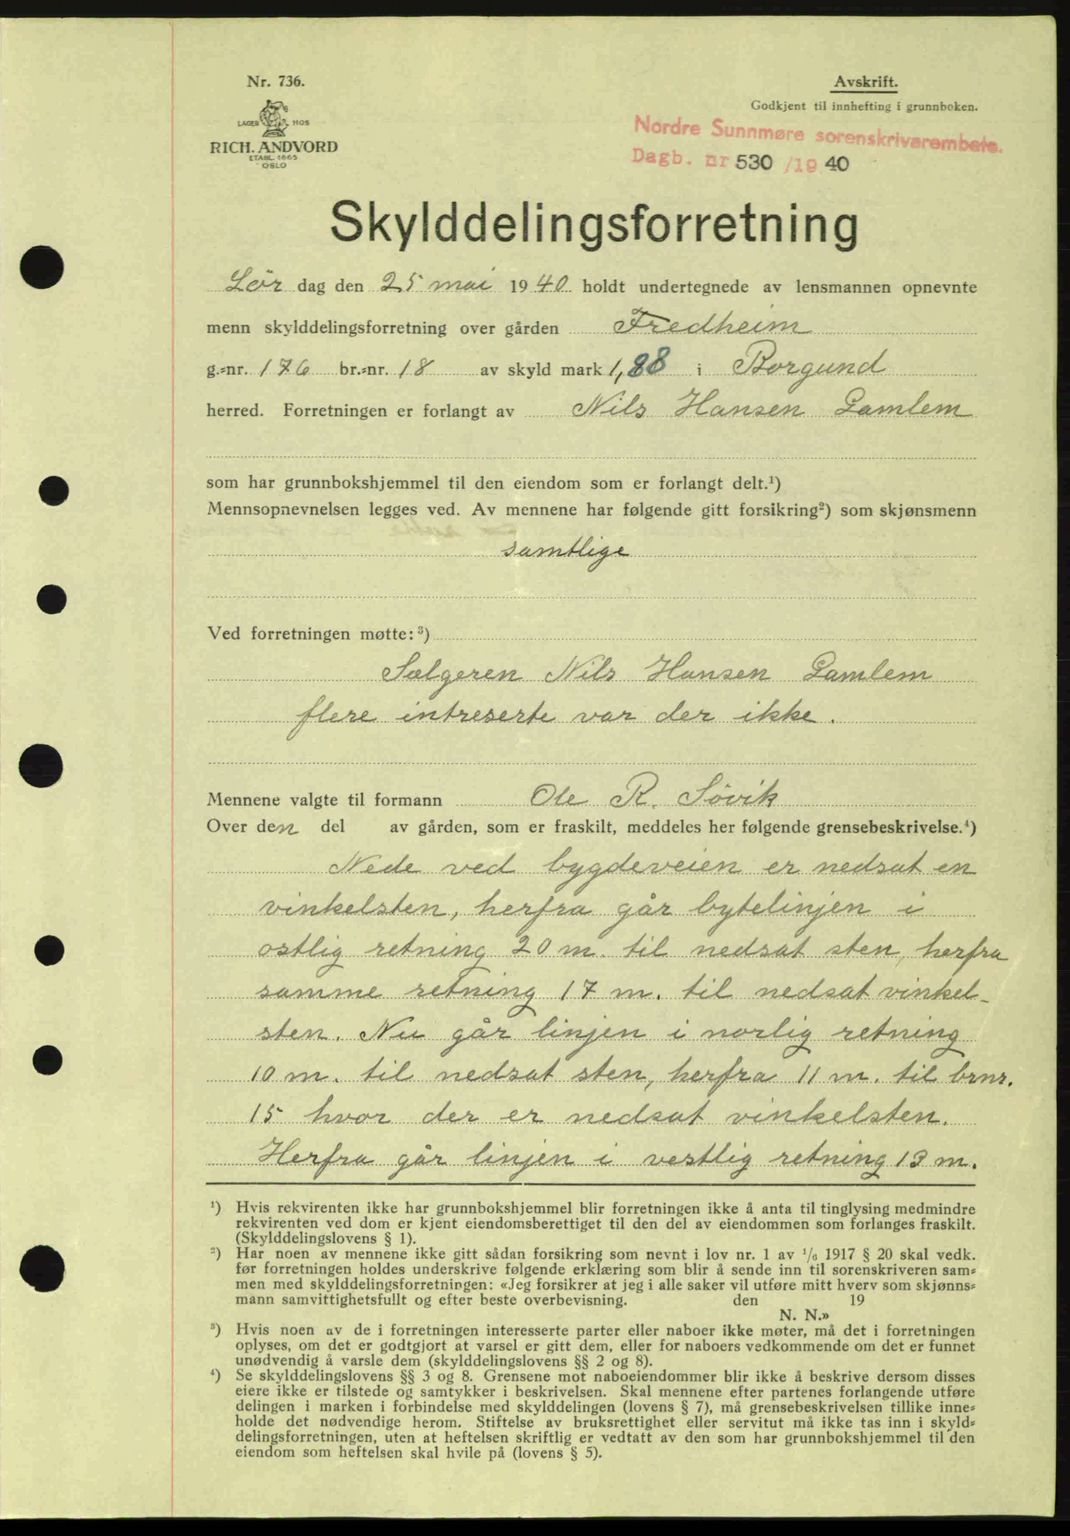 Nr. 736.
LAGER HOS
RICH. ANDVORD
ETABL. 1865
OSLO
Avskrift.
Godkjent til innhefting i grunnboken.
Nordre Sunnmøre sorenskriverembete.
Dagb. nr 530 /19 40
Skylddelingsforretning
Lør dag den 25 mai 1940 holdt undertegnede av lensmannen opnevnte
menn skylddelingsforretning over gården Fredheim
g.=nr. 176 br.=nr. 18 av skyld mark 1,88 i Borgund
herred. Forretningen er forlangt av Nils Hansen Gamlem
som har grunnbokshjemmel til den eiendom som er forlangt delt.¹)
Mennsopnevnelsen legges ved. Av mennene har følgende gitt forsikring²) som skjønsmenn
samtlige
Ved forretningen møtte:³)
Sælgeren Nils Hansen Gamlem
flere intreserte var der ikke.
Mennene valgte til formann Ole R. Søvik
Over den del av gården, som er fraskilt, meddeles her følgende grensebeskrivelse.⁴)
Nede ved bygdeveien er nedsat en
vinkelsten, herfra går bytelinjen i
ostlig retning 20 m. til nedsat sten, herfra
samme retning 17 m. til nedsat vinkel-
sten. Nu går linjen i norlig retning
10 m. til nedsat sten, herfra 11 m. til brnr.
15 hvor der er nedsat vinkelsten.
Herfra går linjen i vestlig retning 13 m.
¹) Hvis rekvirenten ikke har grunnbokshjemmel blir forretningen ikke å anta til tinglysing medmindre
rekvirenten ved dom er kjent eiendomsberettiget til den del av eiendommen som forlanges fraskilt.
(Skylddelingslovens § 1).
²) Har noen av mennene ikke gitt sådan forsikring som nevnt i lov nr. 1 av ¹/₆ 1917 § 20 skal vedk.
før forretningen holdes underskrive følgende erklæring som blir å sende inn til sorenskriveren sam=
men med skylddelingsforretningen: «Jeg forsikrer at jeg i alle saker vil utføre mitt hverv som skjønns=
mann samvittighetsfullt og efter beste overbevisning. den 19
N. N.»
³) Hvis noen av de i forretningen interesserte parter eller naboer ikke møter, må det i forretningen
oplyses, om det er godtgjort at varsel er gitt dem, eller for naboers vedkommende om det er funnet
unødvendig å varsle dem (skylddelingslovens §§ 2 og 8).
⁴) Se skylddelingslovens §§ 3 og 8. Grensene mot naboeiendommer blir ikke å beskrive dersom disses
eiere ikke er tilstede og samtykker i beskrivelsen. Skal mennene efter partenes forlangende utføre
delingen i marken i forbindelse med skylddelingen (lovens § 7), må grensebeskrivelsen tillike inne=
holde det nødvendige herom. Stiftelse av bruksrettighet eller servitut må ikke tas inn i skyld=
delingsforretningen, uten at heftelsen skriftlig er vedtatt av den som har grunnbokshjemmel til den
eiendom som heftelsen skal hvile på (lovens § 5).